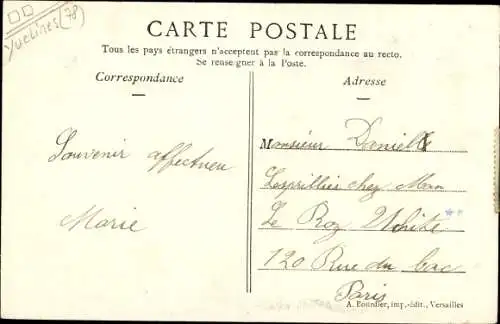 Yvelines (78)
CARTE POSTALE
Tous les pays étrangers n'acceptent pas la correspondance au recto.
Se renseigner à la Poste.
Correspondance
Adresse
Souvenir affectueu
Marie
Monsieur Daniel
chez Mon
Le Roy White
120 Rue du bac
Paris
A. Bourdier, imp.-édit., Versailles